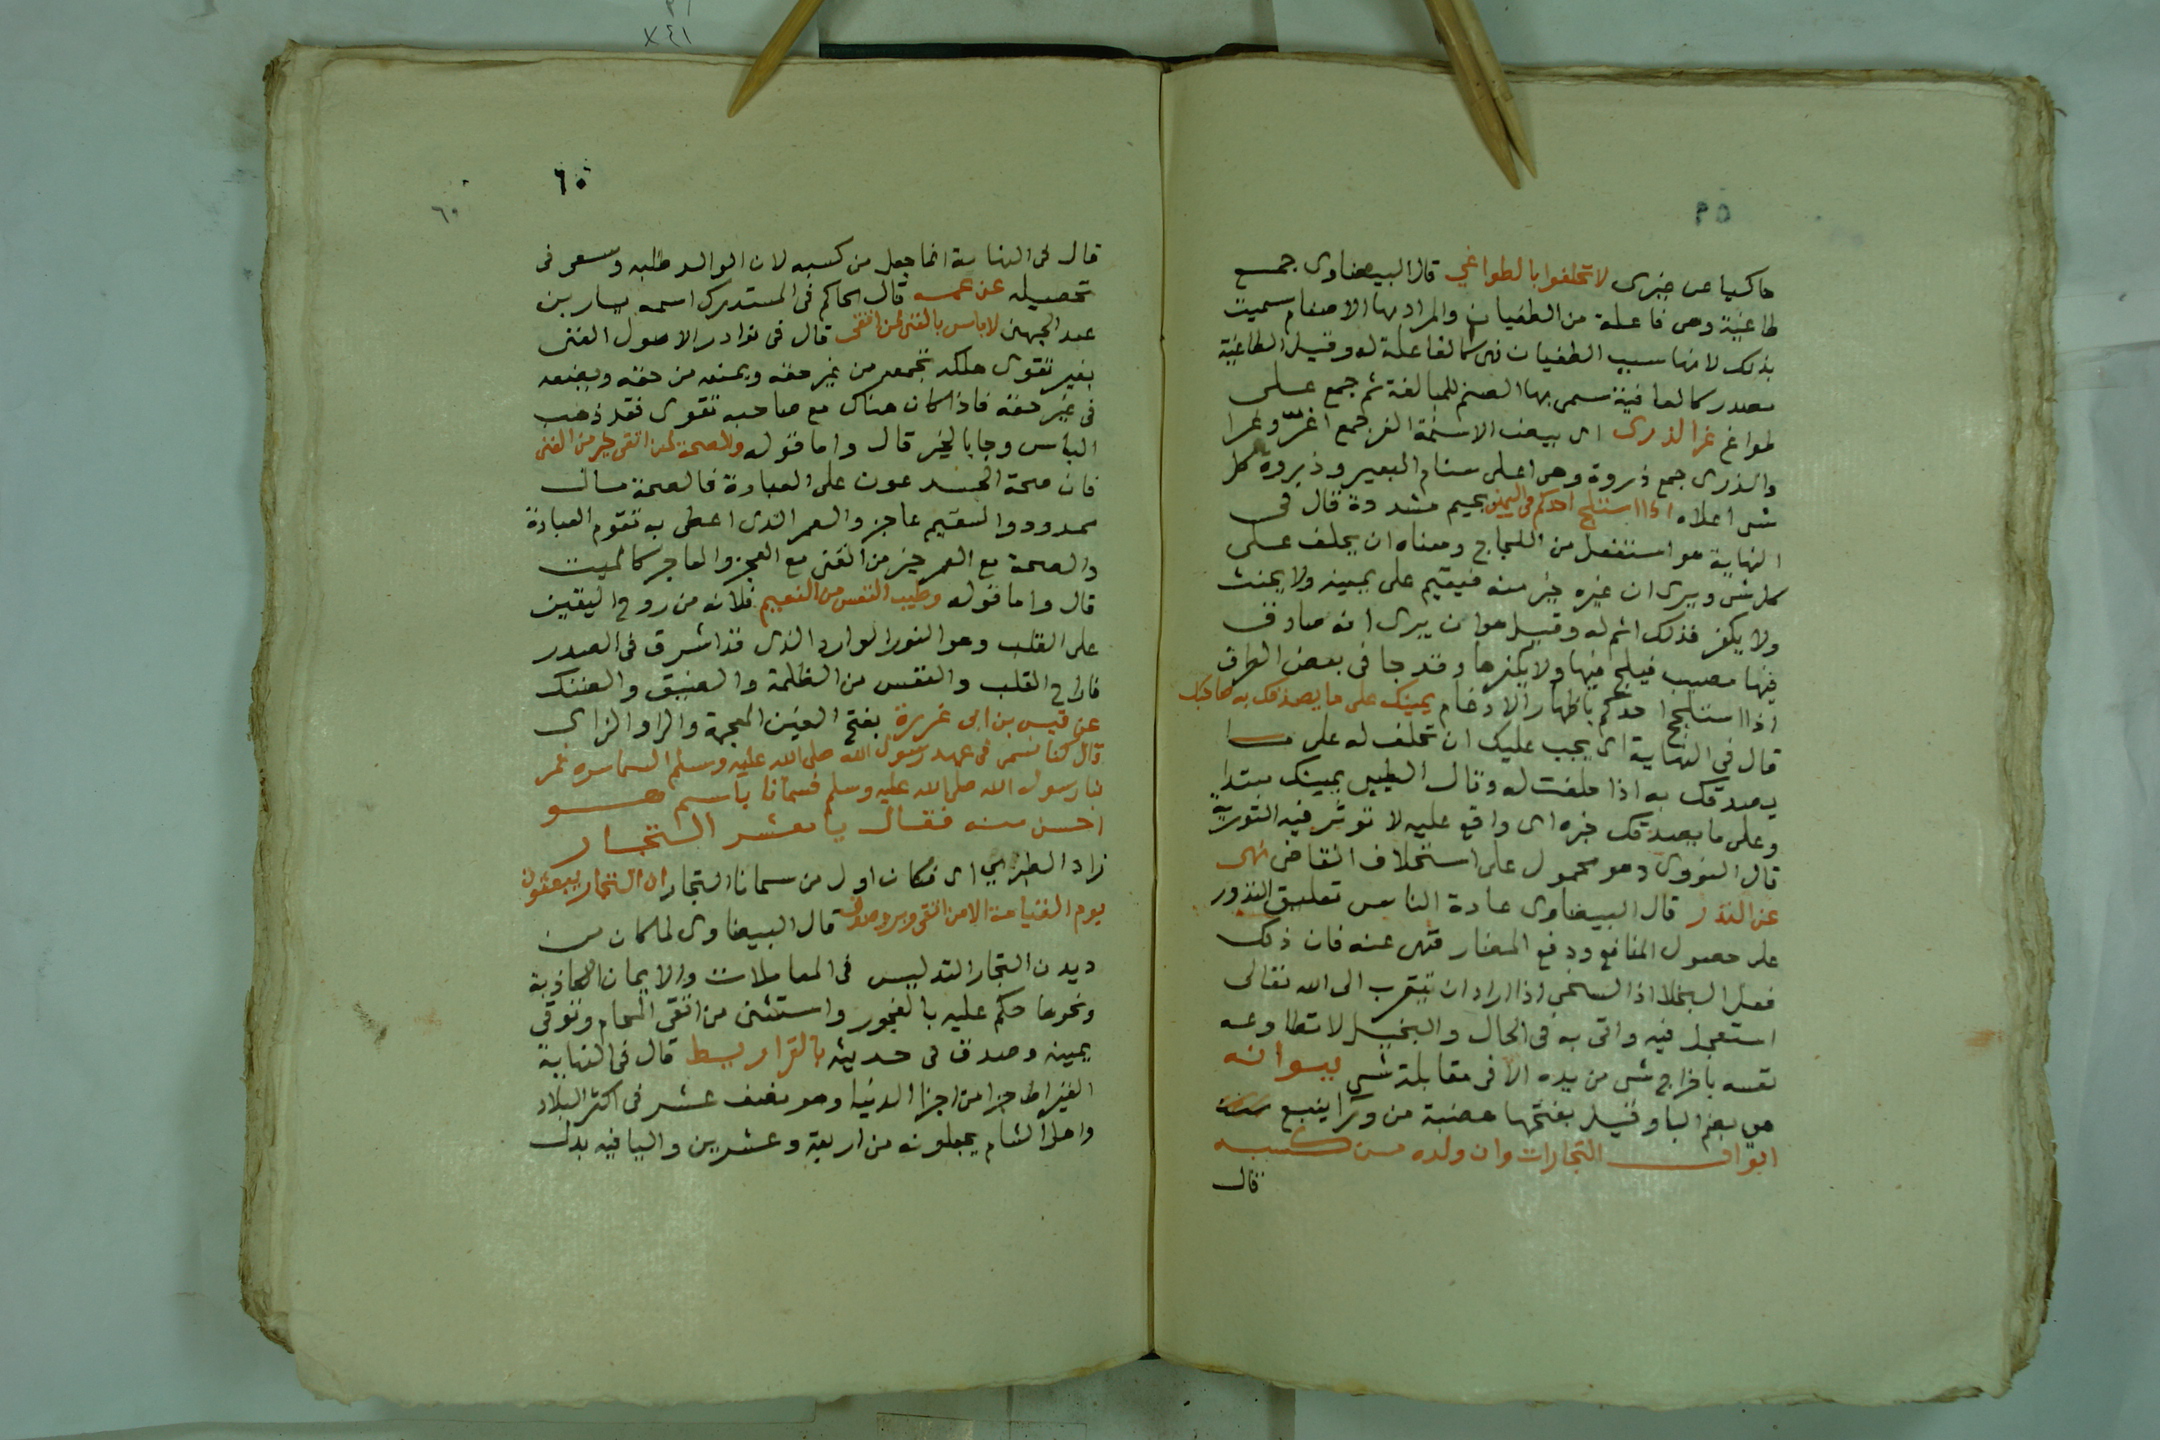 ٥٩
حاكيا عن غيرى لا تحلفوا بالطواغي قال البيضاوى جمع
طاغية وهى فاعلة من الطغيان والمراد بها الاصنام سميت
بذلك لانها سبب الطغيان فهى كالفاعلة له وقيل الطاغية
مصدر كالعافية سمى بها الصنم للمبالغة ثم جمع على
طواغ غر الذرى اى بيض الاسنمة الغر جمع اغر وغرا
والذرى جمع ذروة وهى اعلى سنام البعير وذروة كل
شى اعلاه اذا استلج احدكم فى اليمين بجيم مشددة قال فى
النهاية هو استفعل من اللجاج ومعناه ان يحلف على
كل شى ويرى ان غيره خير منه فيقيم على يمينه ولا يحنث
ولا يكفر فذلك اثم له وقيل هو ان يرى انه صادق
فيها مصيب فيلج فيها ولا يكفرها وقد جا فى بعض الطرق
اذا استلجج احدكم باظهار الادغام يمينك على ما يصدقك به صاحبك
قال فى النهاية اى يجب عليك ان تحلف له على ما
يصدقك به اذا حلفت له وقال الطيبى يمينك مبتدا
وعلى ما يصدقك خبره اى واقع عليه لا تؤثر فيه التورية
قال النووى وهو محمول على استحلاف القاضى نهى
عن النذر قال البيضاوى عادة الناس تعليق النذور
على حصول المنافع ودفع المضار فنهى عنه فان ذلك
فعل البخلا اذ السخى اذا اراد ان يتقرب الى الله تعالى
استعجل فيه واتى به فى الحال والبخيل لا تطاوعه
نفسه باخراج شى من يده الا فى مقابلة شي ببوانه
هى بضم الباوقيل بفتحها هضبة من ورا ينبع
ابواب التجارات وان ولده من كسبه
قال
٦٠
٦٠
قال فى النهاية انما جعل من كسبه لان الوالد طلبه وسعى فى
تحصيله عن عمه قال الحاكم فى المستدرك اسمه يسار بن
عبد الجهنى لا باس بالغنى لمن اتقى قال فى نوادر الاصول الغنى
بغير تقوى هلكه يجمعه من غير حقه ويمنعه من حقه ويضعه
فى غير حقه فاذا كان هناك مع صاحبه تقوى فقد ذهب
الباس وجا بالخير قال واما قوله والصحة لمن اتقى خير من الغنى
فان صحة الجسد عون على العبادة فالصحة مال
ممدود والسقيم عاجز والعمر الذى اعطى به تقوم العبادة
والصحة مع العمر خير من الغنى مع العجز والعاجز كالميت
قال واما قوله وطيب النفس من النعيم فلانه من روح اليقين
على القلب وهو النور الوارد الذى قد اشرق فى الصدر
فاراح القلب والنفس من الظلمة والضيق والضنك
عن قيس بن ابى غرزة بفتح الغين المعجمة والرا والزاى
قال كنا نسمى فى عهد رسول الله صلى الله عليه وسلم السماسرة فمر
بنا رسول الله صلى الله عليه وسلم فسمانا باسم هو
احسن منه فقال يا معشر التجار
زاد الطبراني اى فكان اول من سمانا التجار ان التجار يبعثون
يوم القيامة الا من اتقى وبر وصدق قال البيضاوى لما كان من
ديدن التجار التدليس فى المعاملات والايمان الكاذبة
ونحوها حكم عليه بالفجور واستثنى من اتقى المحام وتوقى
يمينه وصدق فى حديثه بالقراريط قال فى النهاية
القيراط جزا من اجزا الدنيا وهو نصف عشر فى اكثر البلاد
واهل الشام يجعلونه من اربعة وعشرين واليا فيه بدل